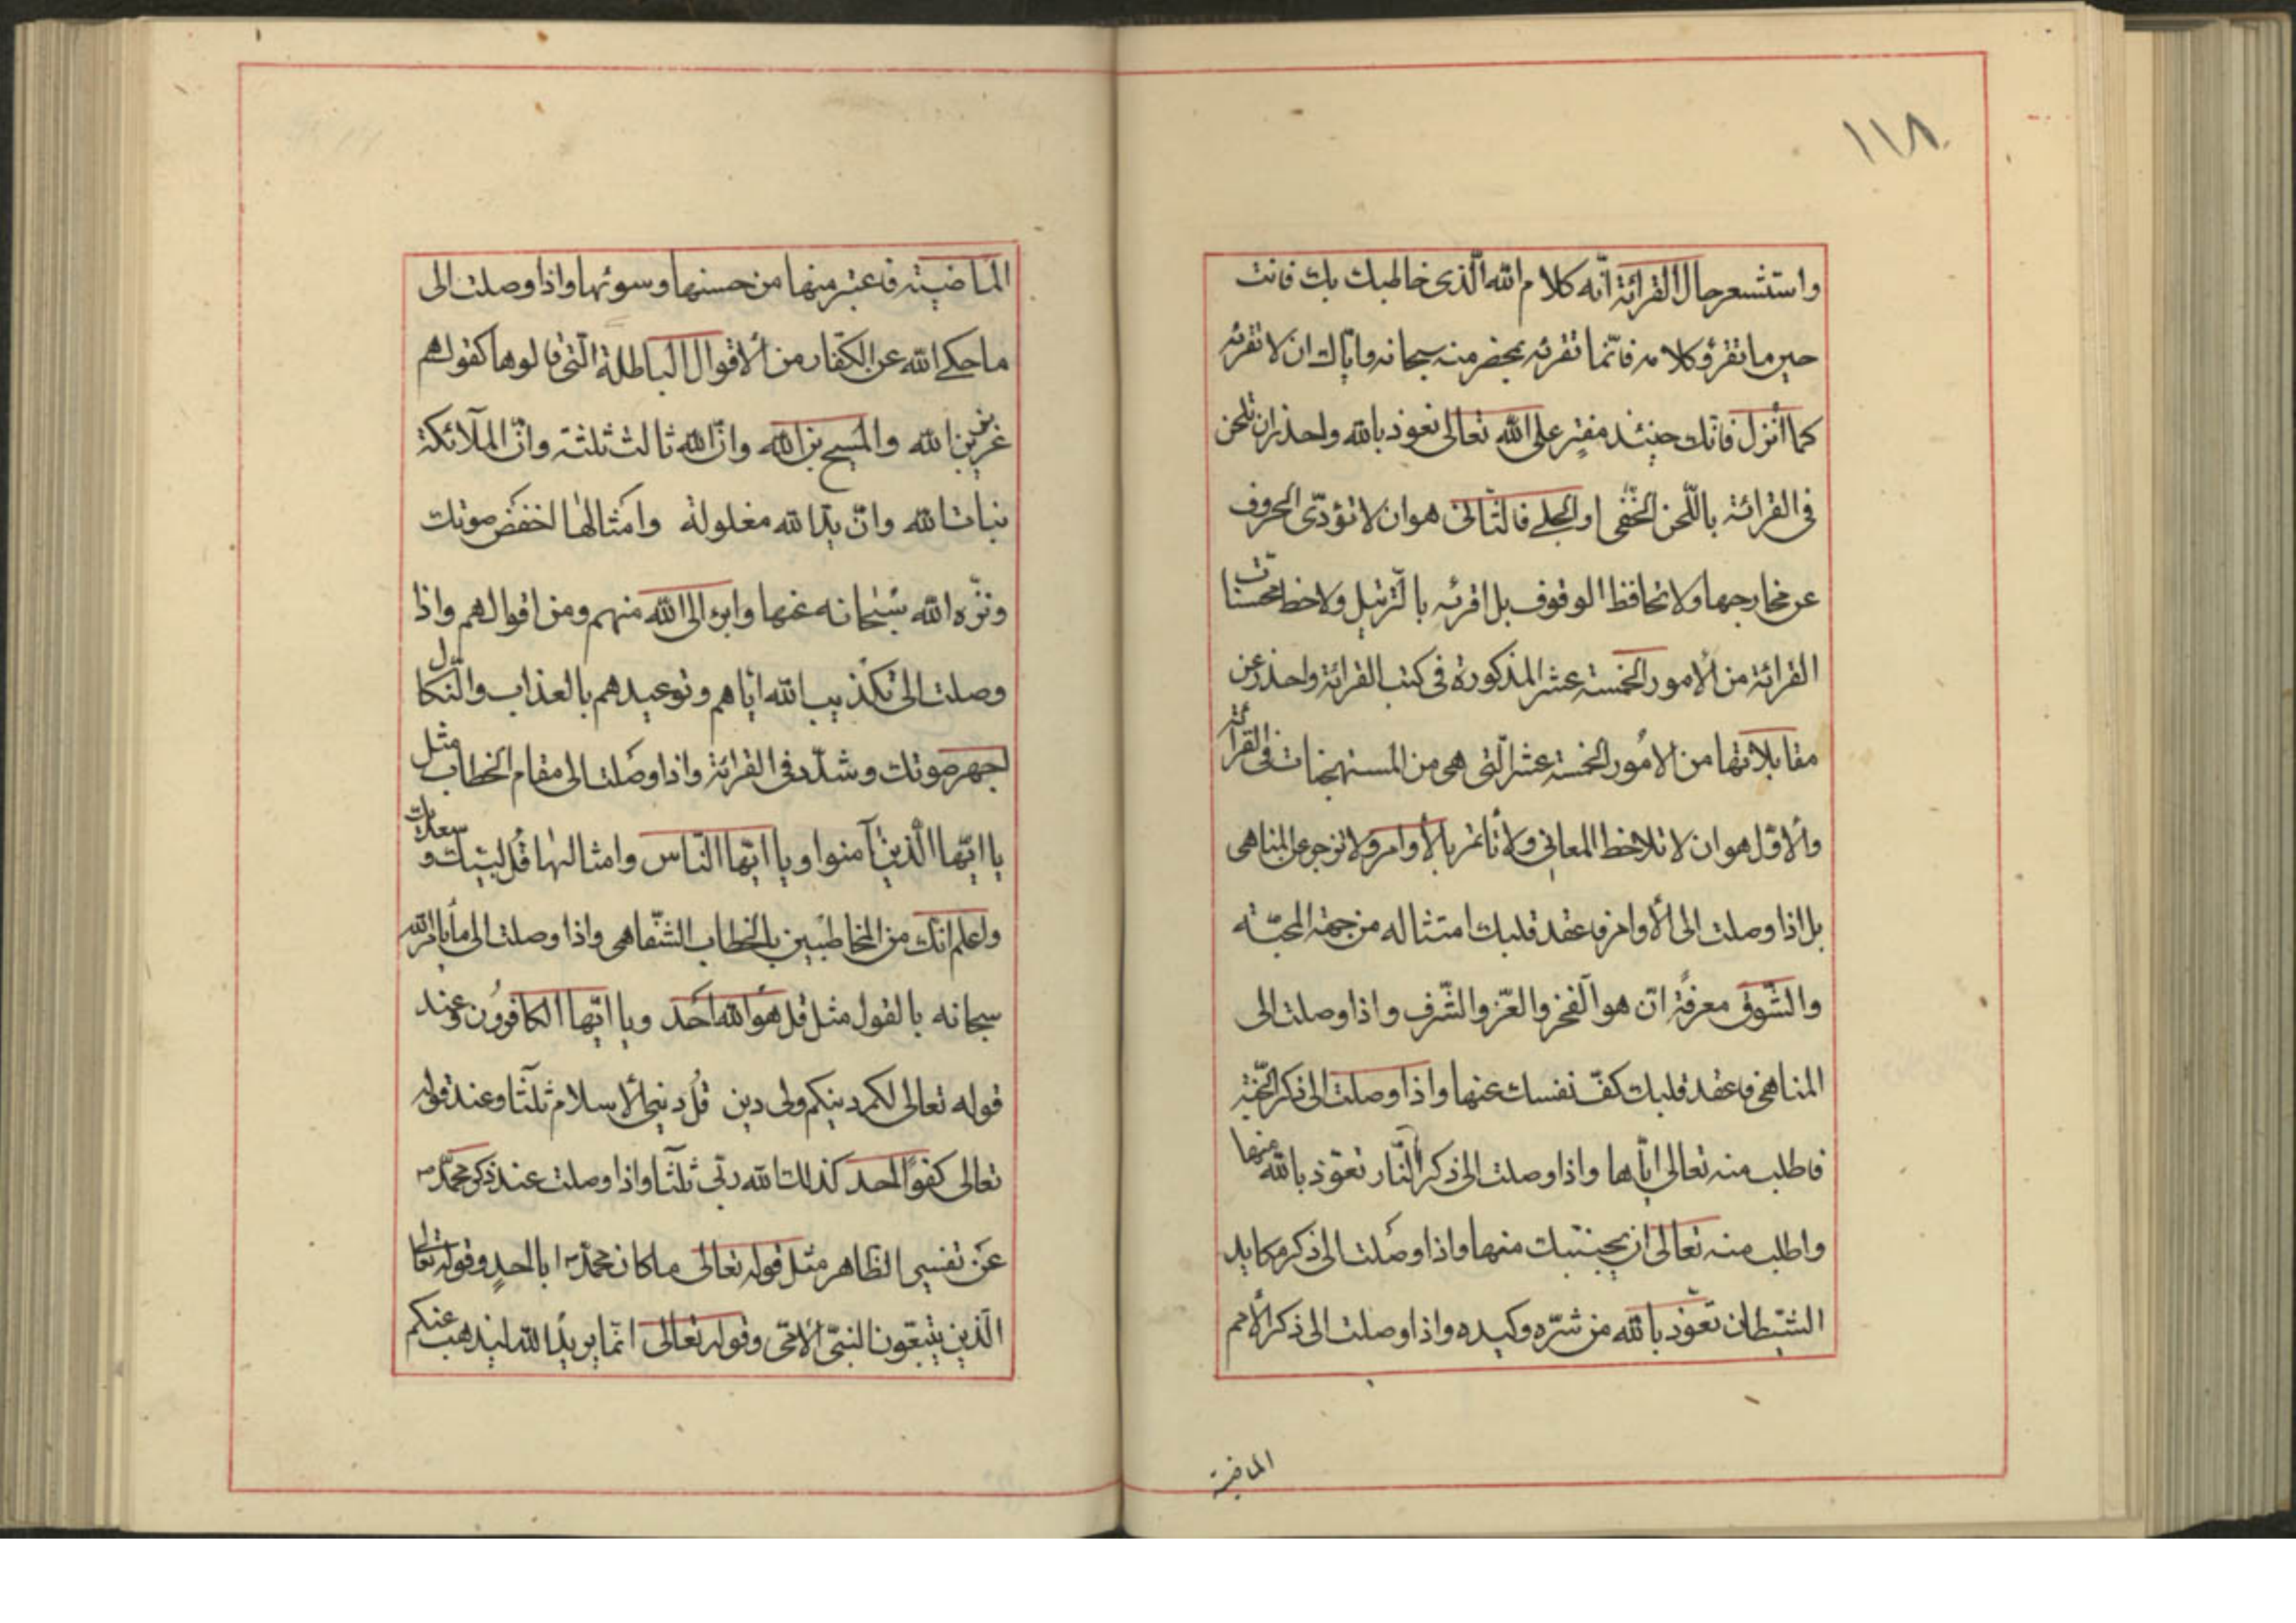 ١١٨
واستشعر حال القرائة انّه كلام الله الّذى خاطبك بك فانت
حين ما تقرؤ كلامه فانّما تقرئه بمحضر منه سبحانه وايّاك ان لا تقرئه
كما أنزل فانّك حينئذ مفترٍ على الله تعالى نعوذ بالله واحذر ان تلحن
فى القرائة باللّحن الخفّى او الجلى فالثّانى هو ان لا تؤدّى الحروف
عن مخارجها ولا تحافظ الوقوف بل اقرئه بالتّرتيل ولاحظ محسنات
القرائة من الأمور الخمسة عشر المذكورة فى كتب القرائة واحذر عن
مقابلاتها من الأمور الخمسة عشر الّتى هى من المستهجنات فى القرائة
والأوّل هو ان لا تلاحظ المعانى ولا تأتمر بالأوامر ولا تزجر عن المناهى
بل اذا وصلت الى الأوامر فاعقد قلبك امتثاله من جهة المحبّة
والشّوق معرفة انّ هو الفخر والعزّ والشّرف واذا وصلت الى
المناهى فاعقد قلبك كفّ نفسك عنها واذا وصلت الى ذكر الجّنة
فاطلب منه تعالى ايّاها واذا وصلت الى ذكر النّار تعوّذ بالله منها
واطلب منه تعالى ان يجنّبك منها واذا وصلت الى ذكر مكايد
الشّيطان تعوّذ بالله من شرّه وكيده واذا وصلت الى ذكر الأمم
الماضية
الماضية فاعتبر منها من حسنها وسوئها واذا وصلت الى
ما حكى الله عن الكفّار من الأقوال الباطلة الّتى قالوها كقولهم
عزير بن الله والمسيح بن الله وانّ الله ثالث ثلثة وانّ الملآئكة
بنات الله وانّ يد الله مغلولة وامثالها اخفض صوتك
ونزّه الله سبحانه عنها وابرء الى الله منهم ومن اقوالهم واذا
وصلت الى تكذيب الله ايّاهم وتوعيدهم بالعذاب والنّكال
اجهر صوتك وشدّد فى القرائة واذا وصلت الى مقام الخطاب مثل
يا ايّها الّذين آمنوا ويا ايّها النّاس وامثالها قُل لبّيك وسعديك
واعلم انّك من المخاطبين بالخطاب الشّفاهى واذا وصلت الى ما يأمر الله
سبحانه بالقول مثل قل هو الله احد ويا ايّها الكافرون وعند
قوله تعالى لكم دينكم ولى دين قُل دينى الأسلام ثلثا وعند قوله
تعالى كفوًا احد كذلك الله ربّى ثلثا واذا وصلت عند ذكر محمّد ص
عن تفسير الظّاهر مثل قوله تعالى ما كان محمّد ص ابا احدٍ وقوله تعالى
الّذين يتّبعون النّبىّ الأمّى وقوله تعالى انّما يريد الله ليذهب عنكم